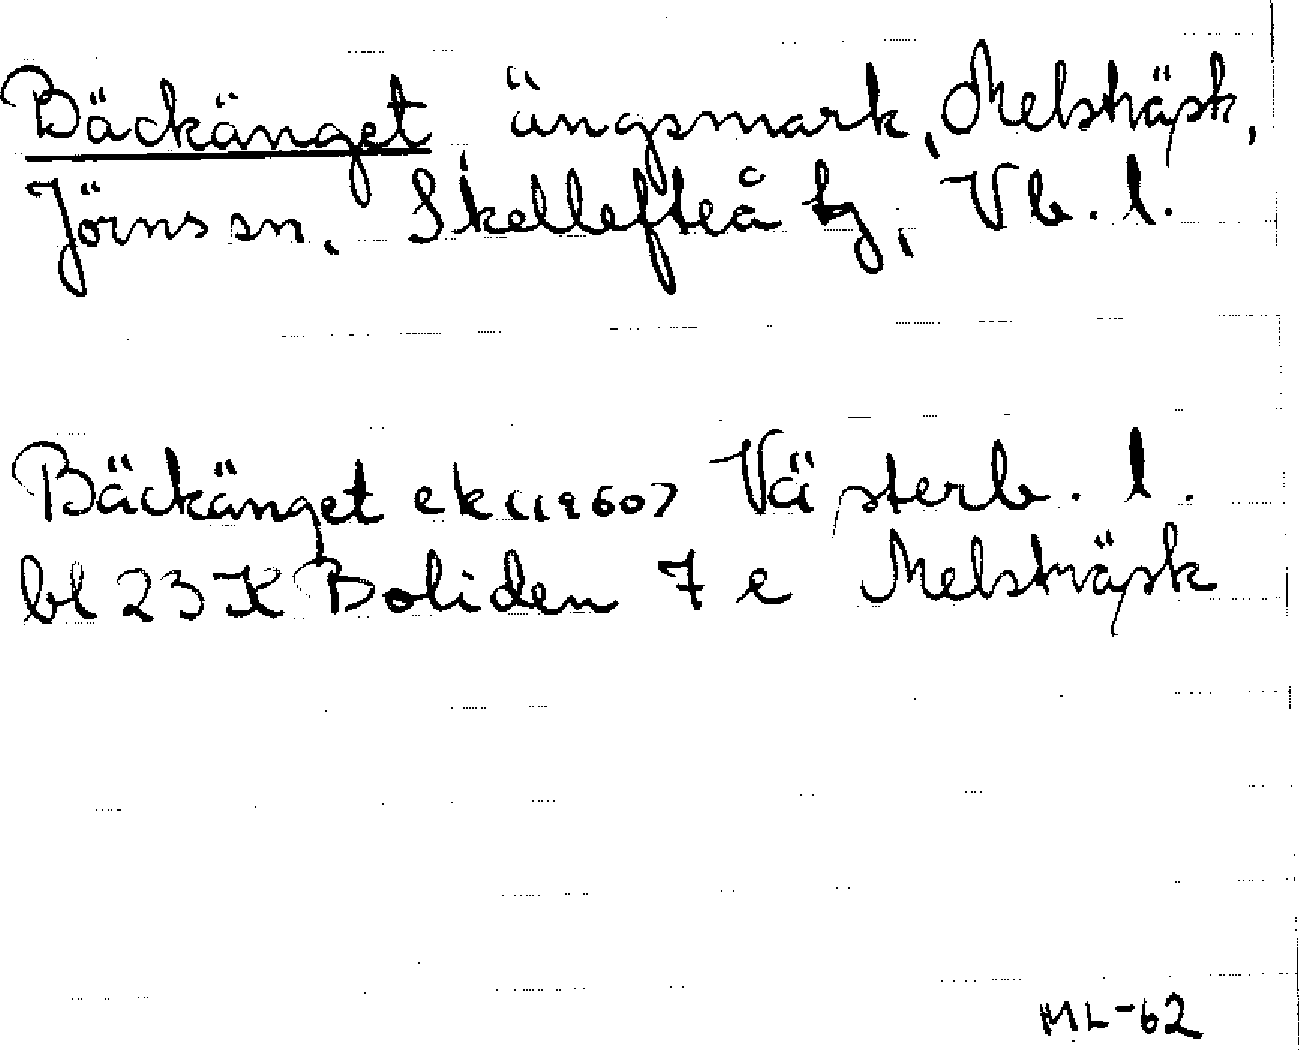 Bäckänget ängsmark, Melsträsk,
Jörns sn, Skellefteå tg, Vb. l.
Bäckänget ek (1960) Västerb. l.
bl 23 K Boliden 7 e Melsträsk
ML-62